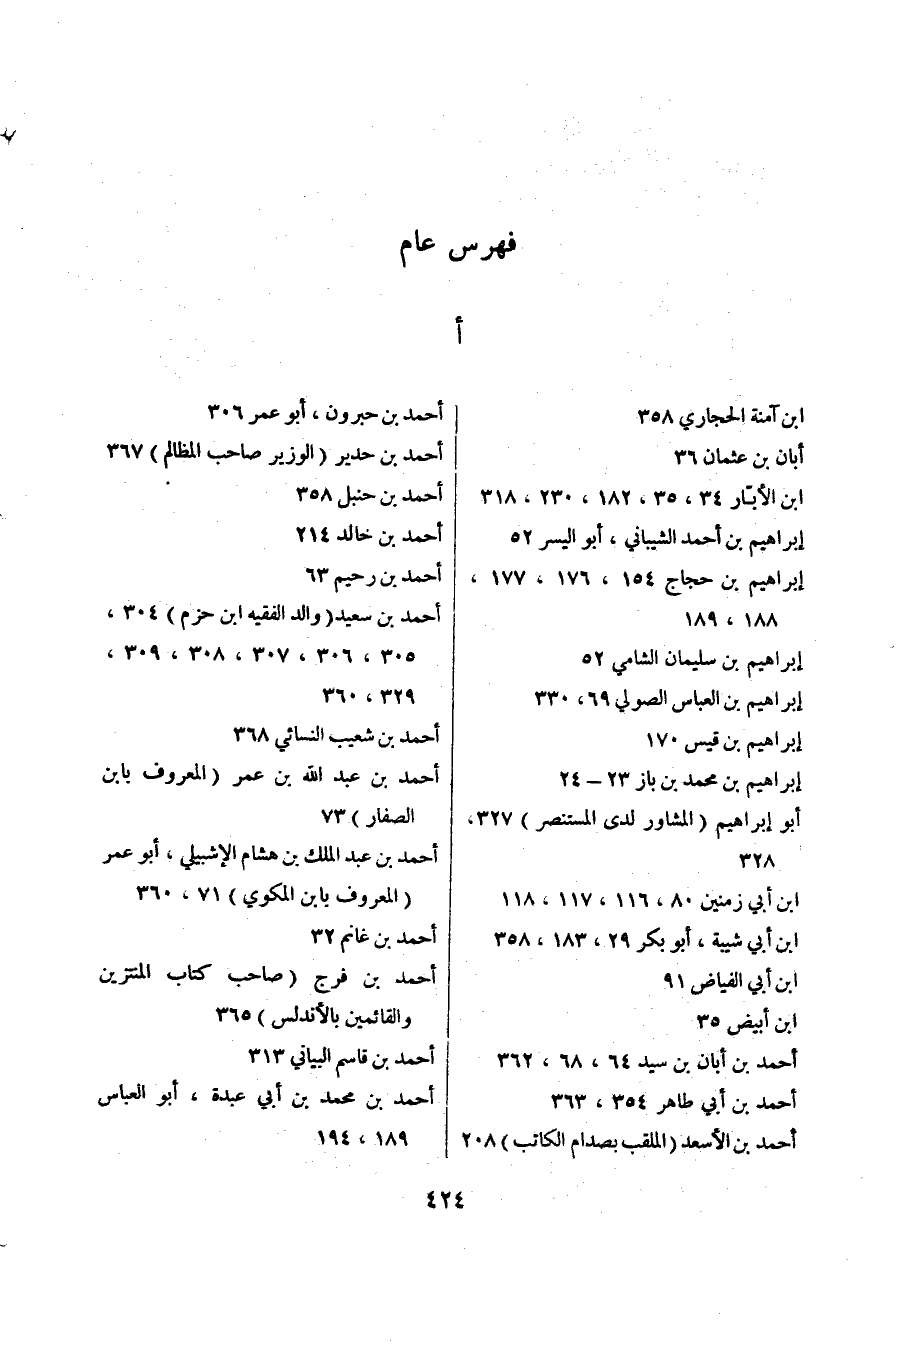 فهرس عام
أ
ابن آمنة الحجاري ٣٥٨
أبان بن عثمان ٣٦
ابن الأبّار ٣٤ ، ٣٥ ، ١٨٢ ، ٢٣٠ ، ٣١٨
إبراهيم بن أحمد الشيباني ، أبو اليسر ٥٢
إبراهيم بن حجاج ١٥٤ ، ١٧٦ ، ١٧٧ ،
١٨٨ ، ١٨٩
إبراهيم بن سليمان الشامي ٥٢
إبراهيم بن العباس الصولي ٦٩، ٣٣٠
إبراهيم بن قيس ١٧٠
إبراهيم بن محمد بن باز ٢٣ – ٢٤
أبو إبراهيم ( المشاور لدى المستنصر ) ٣٢٧،
٣٢٨
ابن أبي زمنين ٨٠ ، ١١٦ ، ١١٧ ، ١١٨
ابن أبي شيبة ، أبو بكر ٢٩ ، ١٨٣ ، ٣٥٨
ابن أبي الفياض ٩١
ابن أبيض ٣٥
أحمد بن أبان بن سيد ٦٤ ، ٦٨ ، ٣٦٢
أحمد بن أبي طاهر ٣٥٤ ، ٣٦٣
أحمد بن الأسعد (الملقب بصدام الكاتب) ٢٠٨
أحمد بن حبرون ، أبو عمر ٣٠٦
أحمد بن حدير ( الوزير صاحب المظالم ) ٣٦٧
أحمد بن حنبل ٣٥٨
أحمد بن خالد ٢١٤
أحمد بن رحيم ٦٣
أحمد بن سعيد( والد الفقيه ابن حزم ) ٣٠٤ ،
٣٠٥ ، ٣٠٦ ، ٣٠٧ ، ٣٠٨ ، ٣٠٩ ،
٣٢٩ ، ٣٦٠
أحمد بن شعيب النسائي ٣٦٨
أحمد بن عبد الله بن عمر ( المعروف بابن
الصفار ) ٧٣
أحمد بن عبد الملك بن هشام الإشبيلي ، أبو عمر
( المعروف بابن المكوي ) ٧١ ، ٣٦٠
أحمد بن غانم ٣٢
أحمد بن فرج ( صاحب كتاب المنتزين
والقائمين بالأندلس ) ٣٦٥
أحمد بن قاسم البياني ٣١٣
أحمد بن محمد بن أبي عبدة ، أبو العباس
١٨٩ ، ١٩٤
٤٢٤